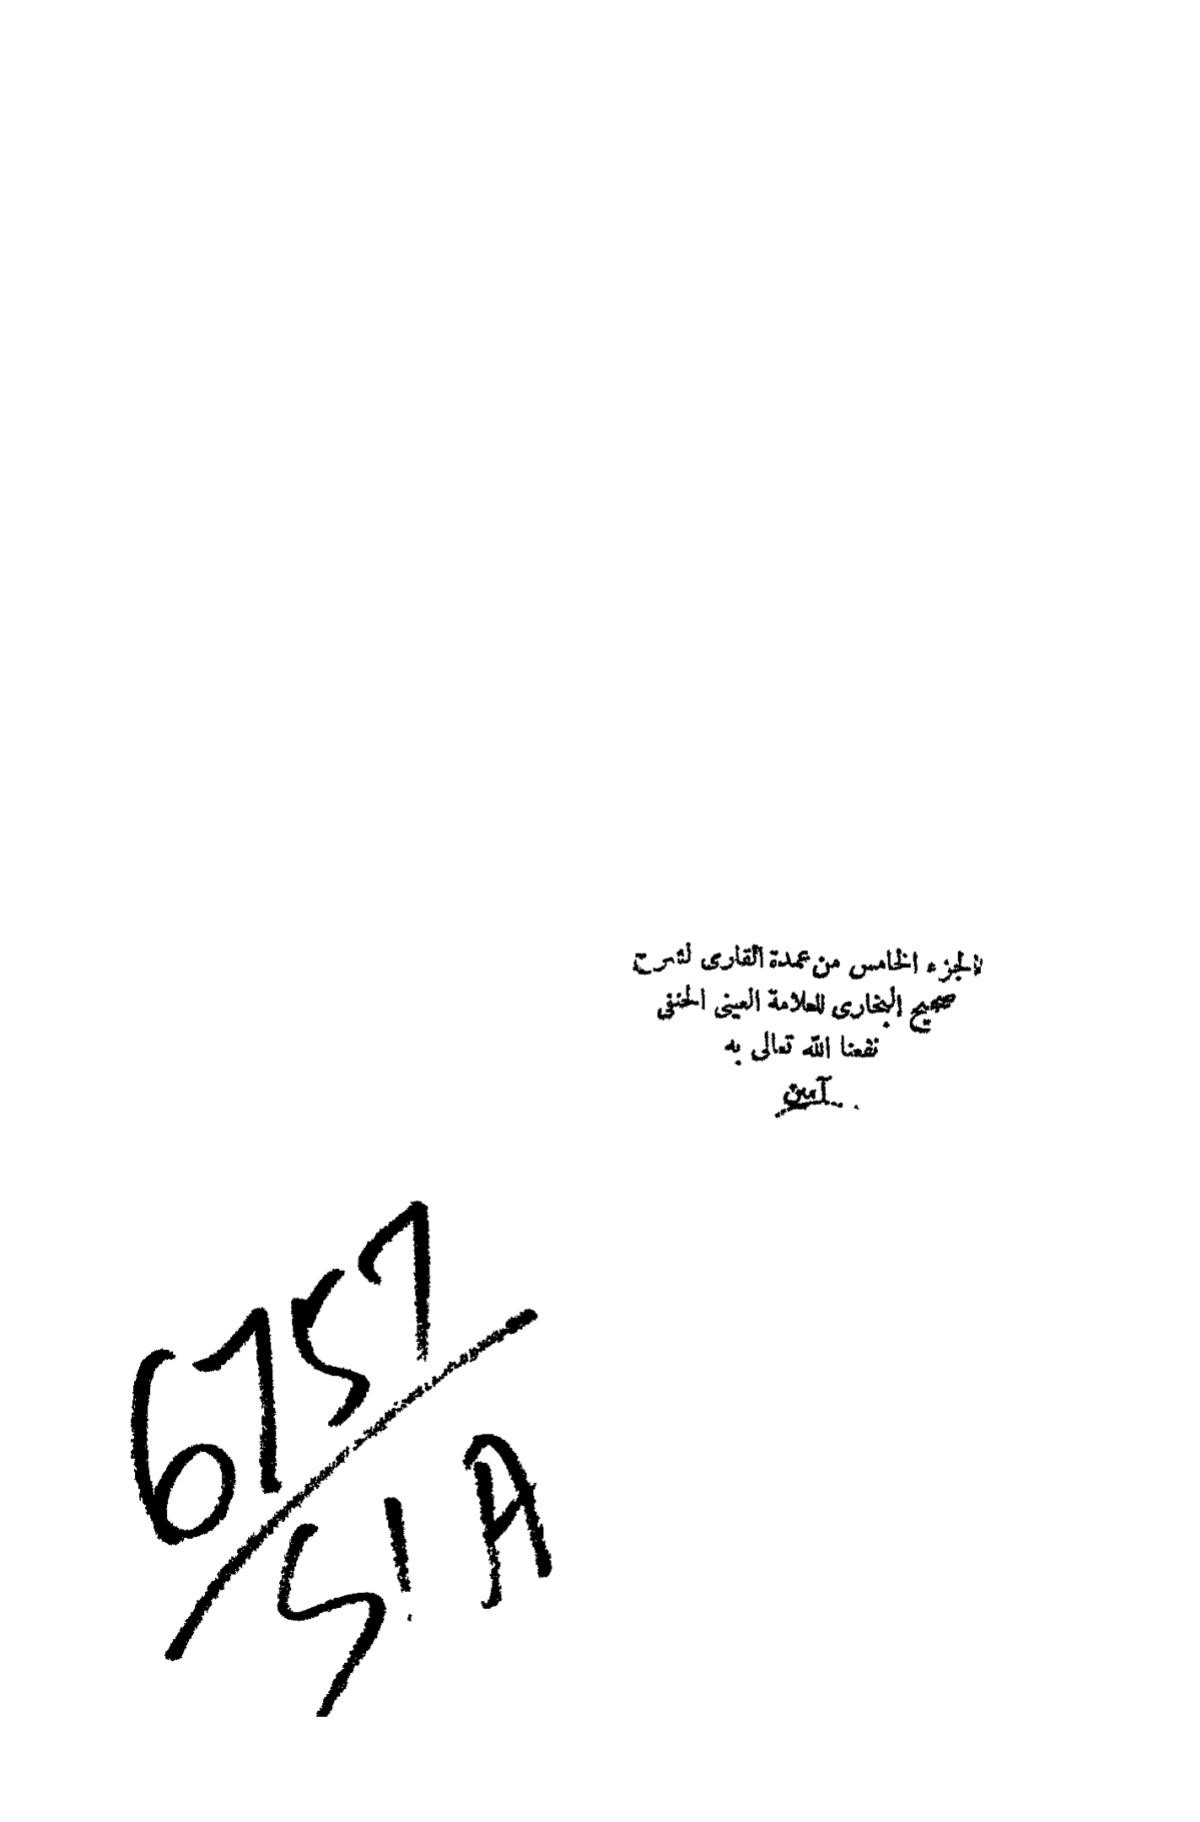 الجزء الخامس من عمدة القارى لشرح
صحيح البخارى للعلامة العينى الحنفى
نفعنا الله تعالى به
آمين
6757
S/A